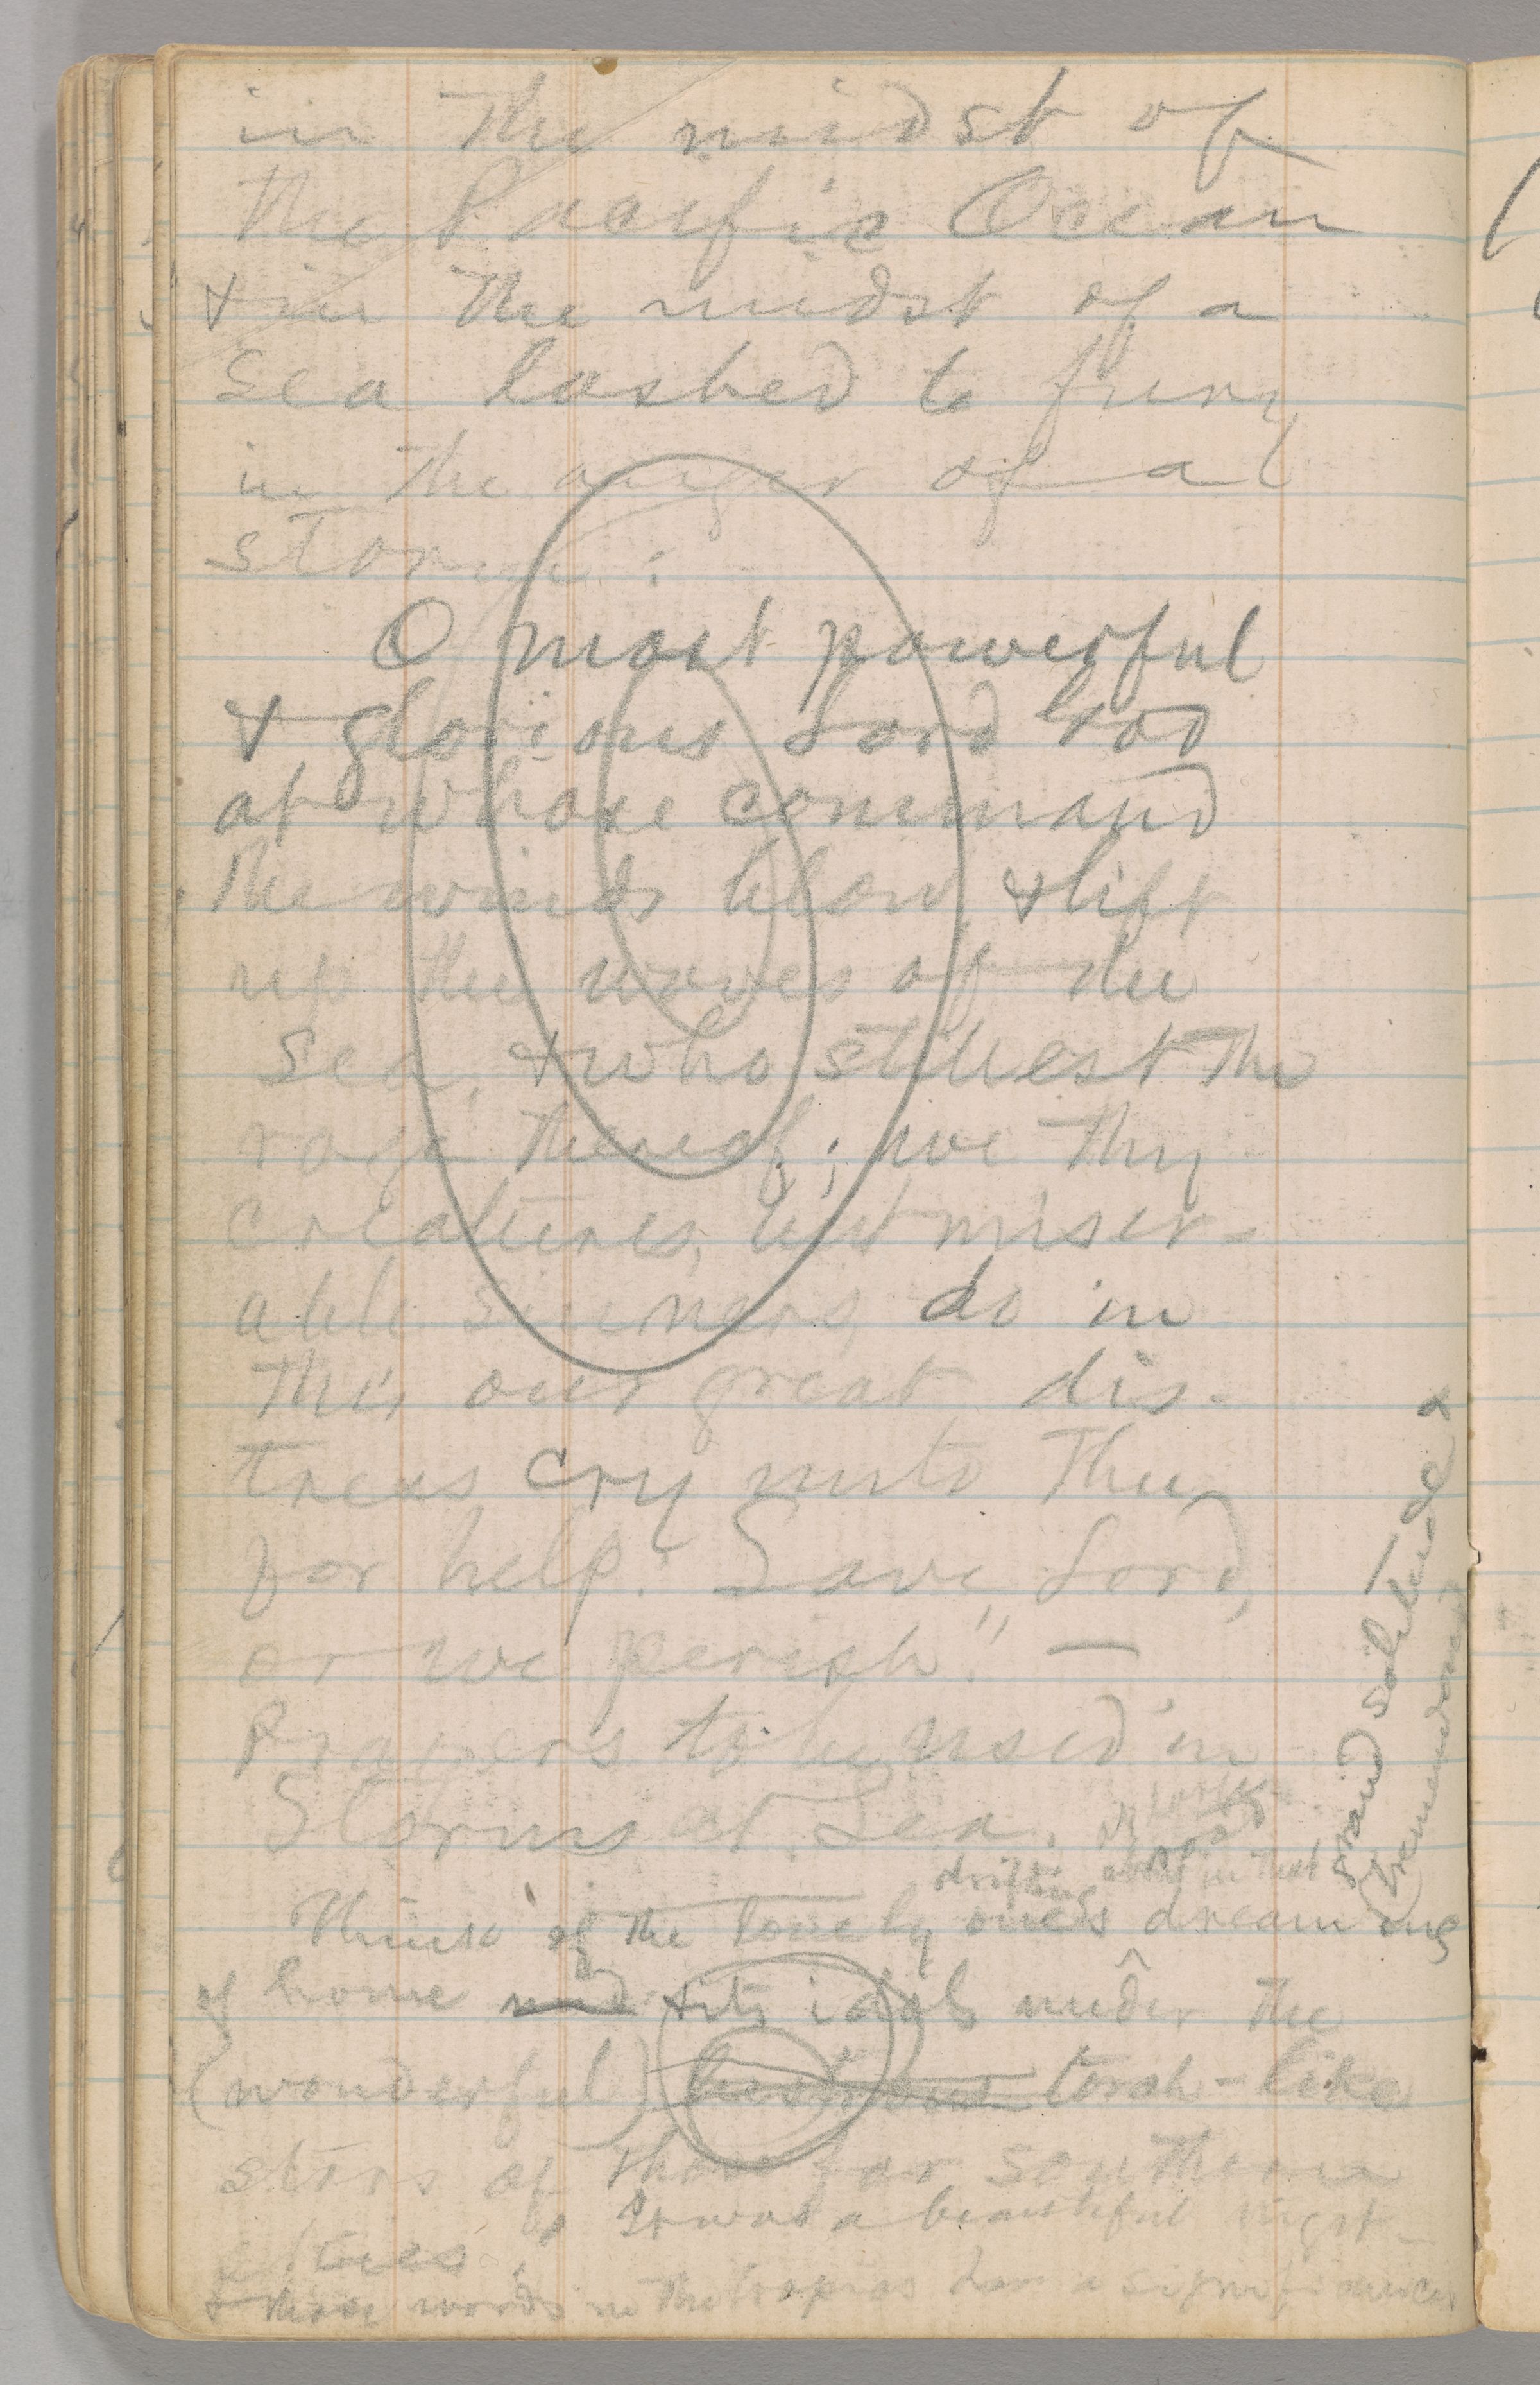 in the midst of
the Pacific Ocean
& in the midst of a
sea lashed to fury
in the anger of a
storm:
O most powerful
& glorious Lord God
at whose command
the winds blow, & lift
up the waves of the
sea, & who stillest the
rage thereof; we thy
creatures, but miser-
able sinners, do in
this our great dis-
tress cry unto Thee
for help. Save, Lord,
or we perish." —
Prayers to be used in
Storms at Sea.
drifting about in that
grand solitude &
(tremendous
Think of the lonely ones dreaming
of home and & its idols under the
(wonderful) lustrous torch-like
stars of those far southern
skies. It was a beautiful night—
& those words in the tropics have a significance